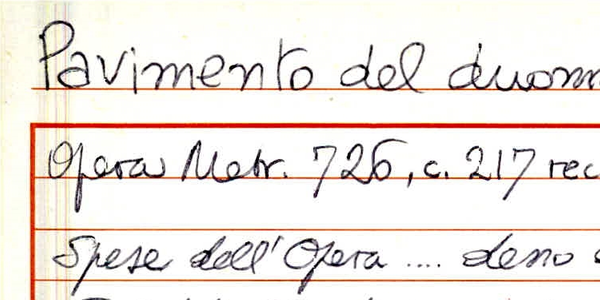 Pavimento del duom
Opera Metr. 726, c. 217 rec
Spese dell'Opera .... deno